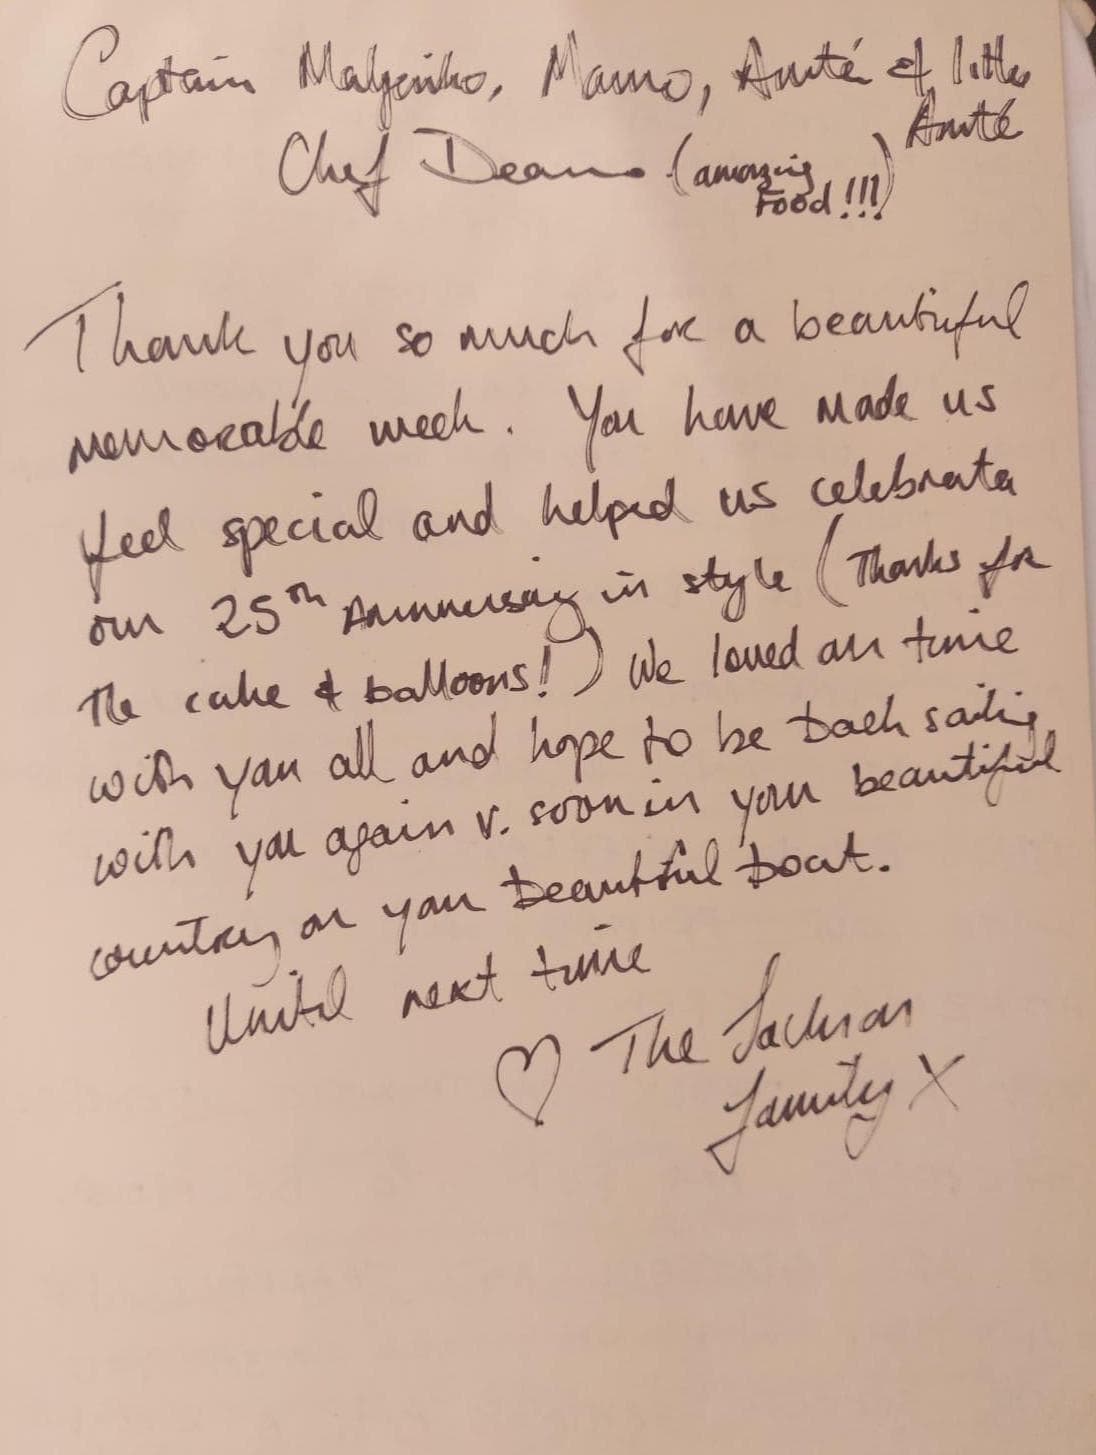 Captain Maljenko, Mamo, Anté & little
Anté
Chef Deano (amazing
Food!!!)
Thank you so much for a beautiful
memorable week. You have made us
feel special and helped us celebrate
our 25th Anniversary in style (Thanks for
the cake & balloons!) We loved our time
with you all and hope to be back sailing
with you again v. soon in your beautiful
country on your beautiful boat.
Until next time
♡ The Jackson
family X